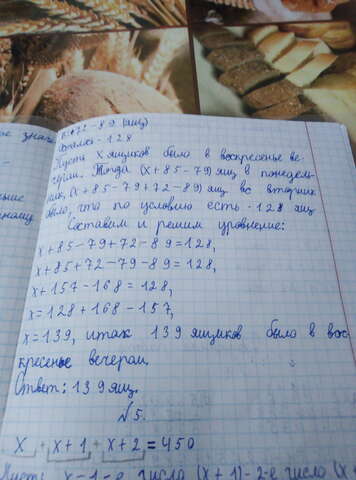 в +72-89 (ящ)
Осталось - 128
Пусть x ящиков было в воскресенье ве-
чером. Тогда (x+85-79) ящ в понедель-
ник, (x+85-79+72-89) ящ во вторник
было, что по условию есть - 128 ящ
Составим и решим уровнение:
x+85-79+72-89=128,
x+85+72-79-89=128,
x+157-168=128,
x=128+168-157,
x=139, итак 139 ящиков было в вос-
кресенье вечерам.
Ответ: 139 ящ.
№5.
x + x+1 + x+2 = 450
x-1-е число (x+1)-2-е число (x+